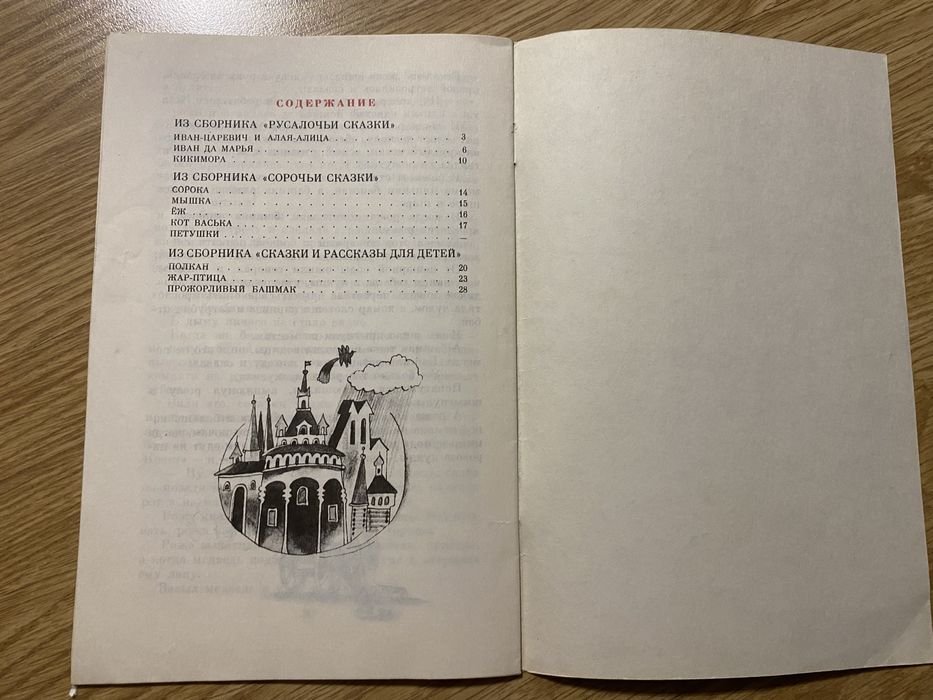 СОДЕРЖАНИЕ
ИЗ СБОРНИКА «РУСАЛОЧЬИ СКАЗКИ»
ИВАН-ЦАРЕВИЧ И АЛАЯ-АЛИЦА . . . . . . . . . . . . 3
ИВАН ДА МАРЬЯ . . . . . . . . . . . . . . . . . . . 6
КИКИМОРА . . . . . . . . . . . . . . . . . . . . . 10
ИЗ СБОРНИКА «СОРОЧЬИ СКАЗКИ»
СОРОКА . . . . . . . . . . . . . . . . . . . . . . 14
МЫШКА . . . . . . . . . . . . . . . . . . . . . . 15
ЁЖ . . . . . . . . . . . . . . . . . . . . . . . . 16
КОТ ВАСЬКА . . . . . . . . . . . . . . . . . . . . 17
ПЕТУШКИ . . . . . . . . . . . . . . . . . . . . . —
ИЗ СБОРНИКА «СКАЗКИ И РАССКАЗЫ ДЛЯ ДЕТЕЙ»
ПОЛКАН . . . . . . . . . . . . . . . . . . . . . . 20
ЖАР-ПТИЦА . . . . . . . . . . . . . . . . . . . . 23
ПРОЖОРЛИВЫЙ БАШМАК . . . . . . . . . . . . . . . 28